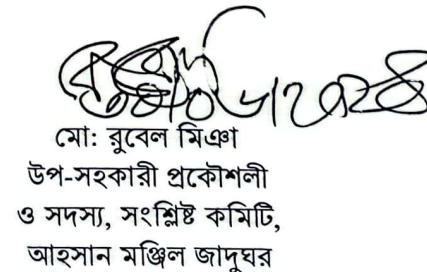 মো: রুবেল মিঞা
উপ-সহকারী প্রকৌশলী
ও সদস্য, সংশ্লিষ্ট কমিটি,
আহসান মঞ্জিল জাদুঘর